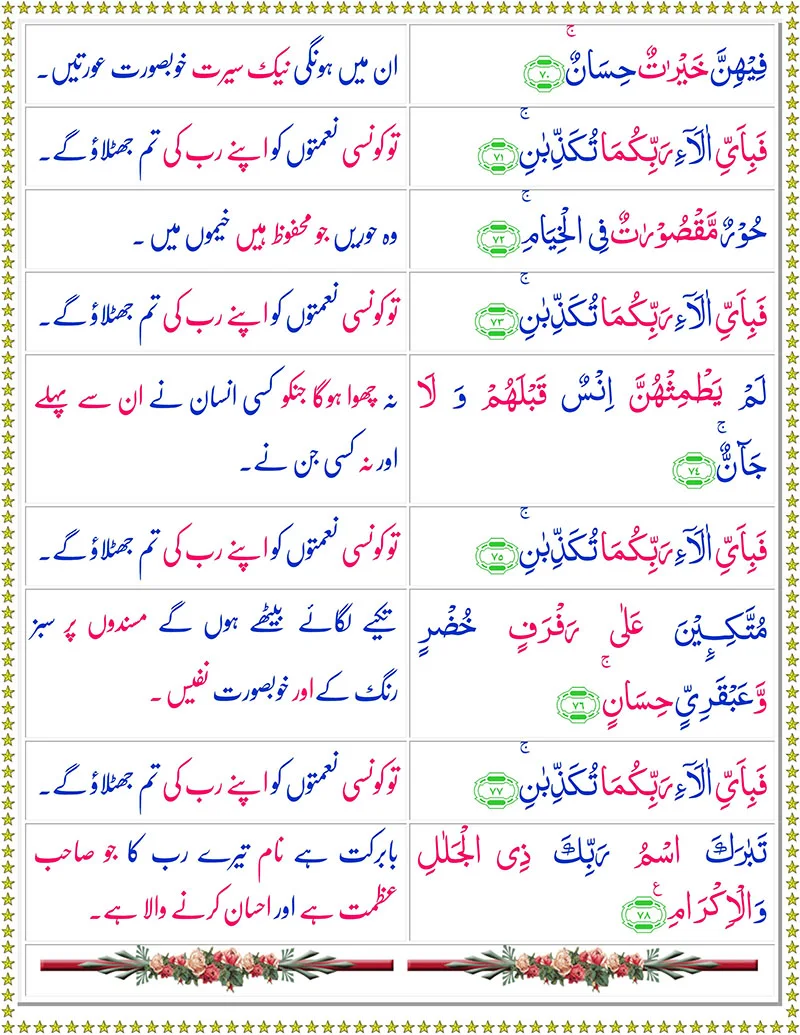 فِيْهِنَّ خَيْرٰتٌ حِسَانٌۚ ٧٠
ان میں ہونگی نیک سیرت خوبصورت عورتیں۔
فَبِاَيِّ اٰلَآءِ رَبِّكُمَا تُكَذِّبٰنِۚ ٧١
تو کونسی نعمتوں کو اپنے رب کی تم جھٹلاؤ گے۔
حُوْرٌ مَّقْصُوْرٰتٌ فِى الْخِيَامِۚ ٧٢
وہ حوریں جو محفوظ ہیں خیموں میں۔
فَبِاَيِّ اٰلَآءِ رَبِّكُمَا تُكَذِّبٰنِۚ ٧٣
تو کونسی نعمتوں کو اپنے رب کی تم جھٹلاؤ گے۔
لَمْ يَطْمِثْهُنَّ اِنْسٌ قَبْلَهُمْ وَ لَا
جَآنٌّۚ ٧٤
نہ چھوا ہوگا جنکو کسی انسان نے ان سے پہلے
اور نہ کسی جن نے۔
فَبِاَيِّ اٰلَآءِ رَبِّكُمَا تُكَذِّبٰنِۚ ٧٥
تو کونسی نعمتوں کو اپنے رب کی تم جھٹلاؤ گے۔
مُتَّكِـِٕيْنَ عَلٰى رَفْرَفٍ خُضْرٍ
وَّعَبْقَرِيٍّ حِسَانٍۚ ٧٦
تکیے لگائے بیٹھے ہوں گے مسندوں پر سبز
رنگ کے اور خوبصورت نفیس۔
فَبِاَيِّ اٰلَآءِ رَبِّكُمَا تُكَذِّبٰنِۚ ٧٧
تو کونسی نعمتوں کو اپنے رب کی تم جھٹلاؤ گے۔
تَبٰرَكَ اسْمُ رَبِّكَ ذِى الْجَلٰلِ
وَالْاِكْرَامِ ع ٧٨
بابرکت ہے نام تیرے رب کا جو صاحب
عظمت ہے اور احسان کرنے والا ہے۔